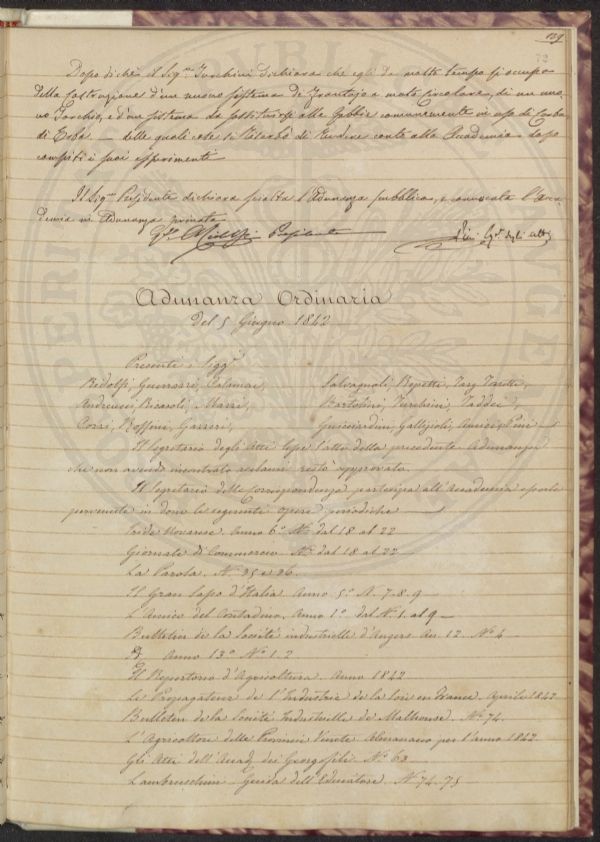 139
72
Dopo di che il Sig.r Turchini dichiara che egli da molto tempo si occupa
della costruzione d'un nuovo sistema di frantojo a moto circolare, di un nuo
vo Torchio, e d'un sistema da sostituirsi alle Gabbie comunemente in uso di
di Erba — delle quali cose si riserba di rendere conto alla Accademia dopo
compiti i suoi esperimenti
Il Sig.r Presidente dichiara sciolta l'Adunanza pubblica, e convocata l'Acca
demia in Adunanza privata
Ridolfi Presidente
Pini Seg.o degli atti
Adunanza Ordinaria
Del 5 Giugno 1842
Presenti i Sigg.i
Ridolfi, Guerrazzi, Calamai, Salvagnoli, Repetti, Targ. Tozzetti,
Andreucci, Ricasoli, Marri, Bartolini, Turchini, Taddei,
Corsi, Buffoni, Gazzeri, Guicciardini, Gallizioli, Pini
Il Segretario degli Atti lesse l'atto della precedente Adunanza
che non avendo incontrato reclami restò approvato.
Il Segretario delle Corrispondenze partecipa all'Accademia esserle
pervenute in dono le seguenti opere periodiche
Anno 6.o N.i dal 18 al 22
Giornale di Commercio N.i dal 18 al 22
La Parola. N.i 25 e 26.
Il Gran Sapo d'Italia Anno 5.o N. 7-8-9
L'Amico del Contadino, Anno 1.o dal N. 1. al 9
Bulletin de la Société industrielle d'Angers An. 12. N.o 4
D.o Anno 13.o N.i 1. 2
Il Repertorio d'Agricoltura Anno 1842
Le Propagateur de l'Industrie de la soie en France. Aprile 1842
Bulletin de la Société Industrielle de Malhouse. N.o 74.
L'Agricoltore delle Provincie Venete Almanacco per l'Anno 1842.
Gli Atti dell'Accad. dei Georgofili N.o 63
Lambruschini — Guida dell'Educatore N. 74-75